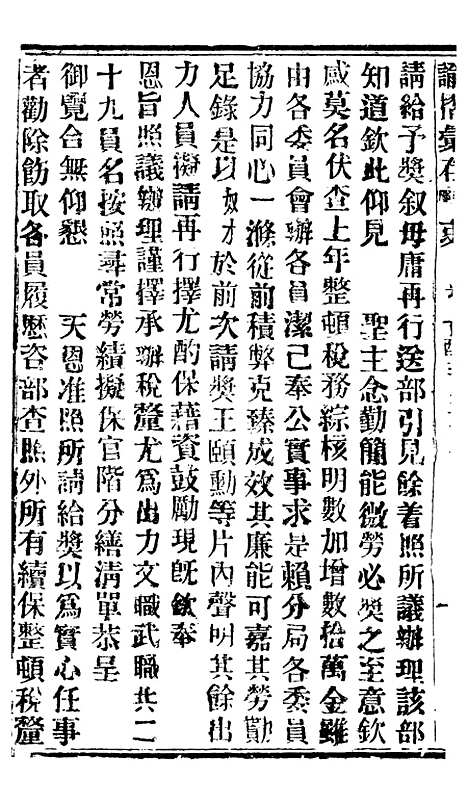 諭摺彙存
請給予獎叙毋庸再行送部引見餘着照所議辦理該部
知道欽此仰見 聖主念勤簡能微勞必獎之至意欽
感莫名伏查上年整頓稅務綜核明數加增數拾萬金雖
由各委員會辦各員潔己奉公實事求是賴分局各委員
協力同心一滌從前積弊克臻成效其廉能可嘉其勞勩
足錄是以奴才於前次請獎王頤勳等片內聲明其餘出
力人員擬請再行擇尤酌保藉資鼓勵現旣欽奉
恩旨照議辦理謹擇承辦稅釐尤爲出力文職武職共二
十九員名按照尋常勞績擬保官階分繕清單恭呈
御覽合無仰懇 天恩准照所請給獎以爲實心任事
者勸除飭取各員履歷咨部查照外所有續保整頓稅釐